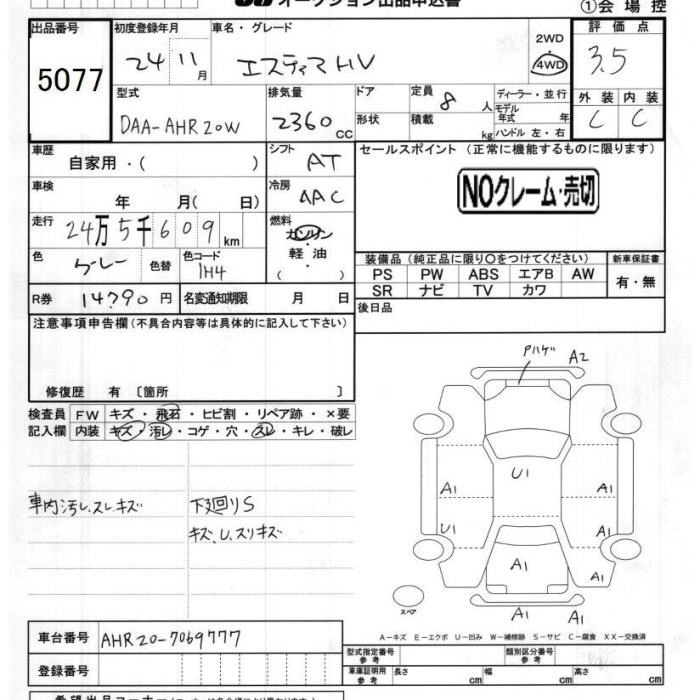 オークション出品申込書
①会場控
出品番号
5077
初度登録年月
24 11月
車名・グレード
エスティマHV
2WD
4WD
評価点
3.5
型式
DAA-AHR20W
排気量
2360 CC
ドア
形状
定員
8 人
積載 kg
ディーラー・並行
モデル年式 年
ハンドル 左・右
外装 内装
C C
車歴
自家用・( )
シフト
AT
セールスポイント (正常に機能するものに限ります)
NOクレーム・売切
車検
年 月( 日)
冷房
AAC
走行
24万5千609km
燃料
ガソリン
・
軽油
・
( )
色
グレー
色替
色コード
1H4
装備品(純正品に限り〇をつけてください)
新車保証書
PS PW ABS エアB AW
SR ナビ TV カワ
有・無
R券
14790円
名変通知期限 月 日
後日品
注意事項申告欄(不具合内容等は具体的に記入して下さい)
修復歴 有 〔箇所 〕
検査員
記入欄
FW キズ・飛石・ヒビ割・リペア跡・×要
内装 キズ・汚レ・コゲ・穴・スレ・キレ・破レ
車内汚レ、スレ、キズ
下廻りS
キズ、U、スリキズ
Pハゲ A2
U1
A1 A1
U1 A1
A1 A1
A1 A1
スペア
A-キズ E-エクボ U-凹み W-補修跡 S-サビ C-腐食 XX-交換済
車台番号
AHR20-7069777
登録番号
型式指定番号
参考
類別区分番号
参考
車庫証明用
参考
長さ cm
幅 cm
高さ cm